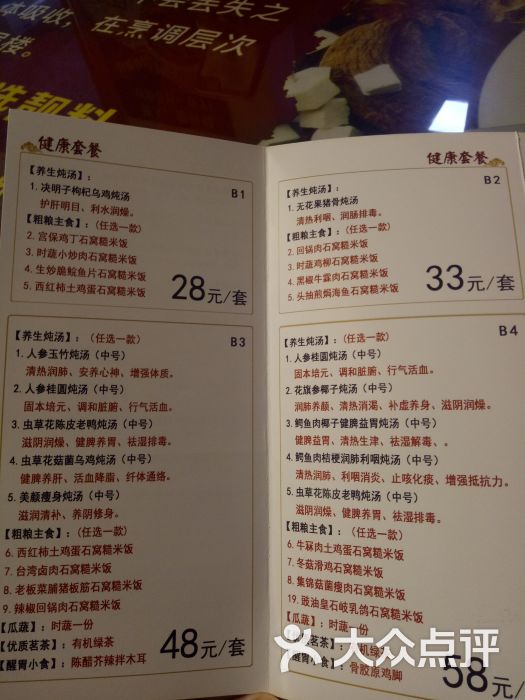 体吸收，在烹调层次
健康套餐
【养生炖汤】：
B1
1. 决明子枸杞乌鸡炖汤
护肝明目、利水润燥。
【粗粮主食】：(任选一款)
2. 宫保鸡丁石窝糙米饭
3. 时蔬小炒肉石窝糙米饭
4. 生炒脆鲩鱼片石窝糙米饭
5. 西红柿土鸡蛋石窝糙米饭
28元/套
【养生炖汤】：(任选一款)
B3
1. 人参玉竹炖汤（中号）
清热润肺、安养心神、增强体质。
2. 人参桂圆炖汤（中号）
固本培元、调和脏腑、行气活血。
3. 虫草花陈皮老鸭炖汤（中号）
滋阴润燥、健脾养胃、祛湿排毒。
4. 虫草花菇菌乌鸡炖汤（中号）
健脾养肝、活血降脂、纤体通络。
5. 美颜瘦身炖汤（中号）
滋润清补、养阴修身。
【粗粮主食】：(任选一款)
6. 西红柿土鸡蛋石窝糙米饭
7. 台湾卤肉石窝糙米饭
8. 老板菜脯猪板筋石窝糙米饭
9. 辣椒回锅肉石窝糙米饭
【瓜蔬】：时蔬一份
【优质茗茶】：有机绿茶
【醒胃小食】：陈醋芥辣拌木耳
48元/套
健康套餐
【养生炖汤】：
B2
1. 无花果猪骨炖汤
清热利咽、润肠排毒。
【粗粮主食】：(任选一款)
2. 回锅肉石窝糙米饭
3. 时蔬鸡柳石窝糙米饭
4. 黑椒牛霖肉石窝糙米饭
5. 头抽煎焗海鱼石窝糙米饭
33元/套
【养生炖汤】：(任选一款)
B4
1. 人参桂圆炖汤（中号）
固本培元、调和脏腑、行气活血。
2. 花旗参椰子炖汤（中号）
润肺养颜、清热消渴、补虚养身、滋阴润燥。
3. 鳄鱼肉椰子健脾益胃炖汤（中号）
健脾益胃、清热生津、祛湿解毒、。
4. 鳄鱼肉桔梗润肺利咽炖汤（中号）
清热润肺、利咽消炎、止咳化痰、增强抵抗力。
5. 虫草花陈皮老鸭炖汤（中号）
滋阴润燥、健脾养胃、祛湿排毒。
【粗粮主食】：(任选一款)
6. 牛冧肉土鸡蛋石窝糙米饭
7. 冬菇滑鸡石窝糙米饭
8. 集锦菇菌瘦肉石窝糙米饭
19. 豉油皇石岐乳鸽石窝糙米饭
【瓜蔬】：时蔬一份
【优质茗茶】：有机绿茶
【醒胃小食】：骨胶原鸡脚
58元/套
大众点评